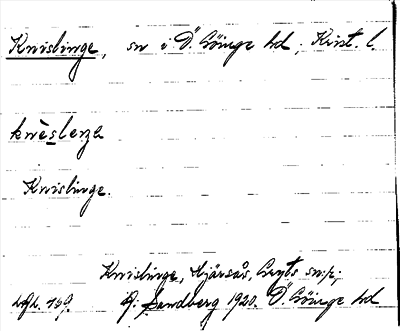 Knislinge, sn i Ö. Göinge hd, Krist. l.
knèslenga
Knislinge.
Knislinge, Hjärsås, Gryts sn:r,
A. Sandberg 1920. Ö. Göinge hd